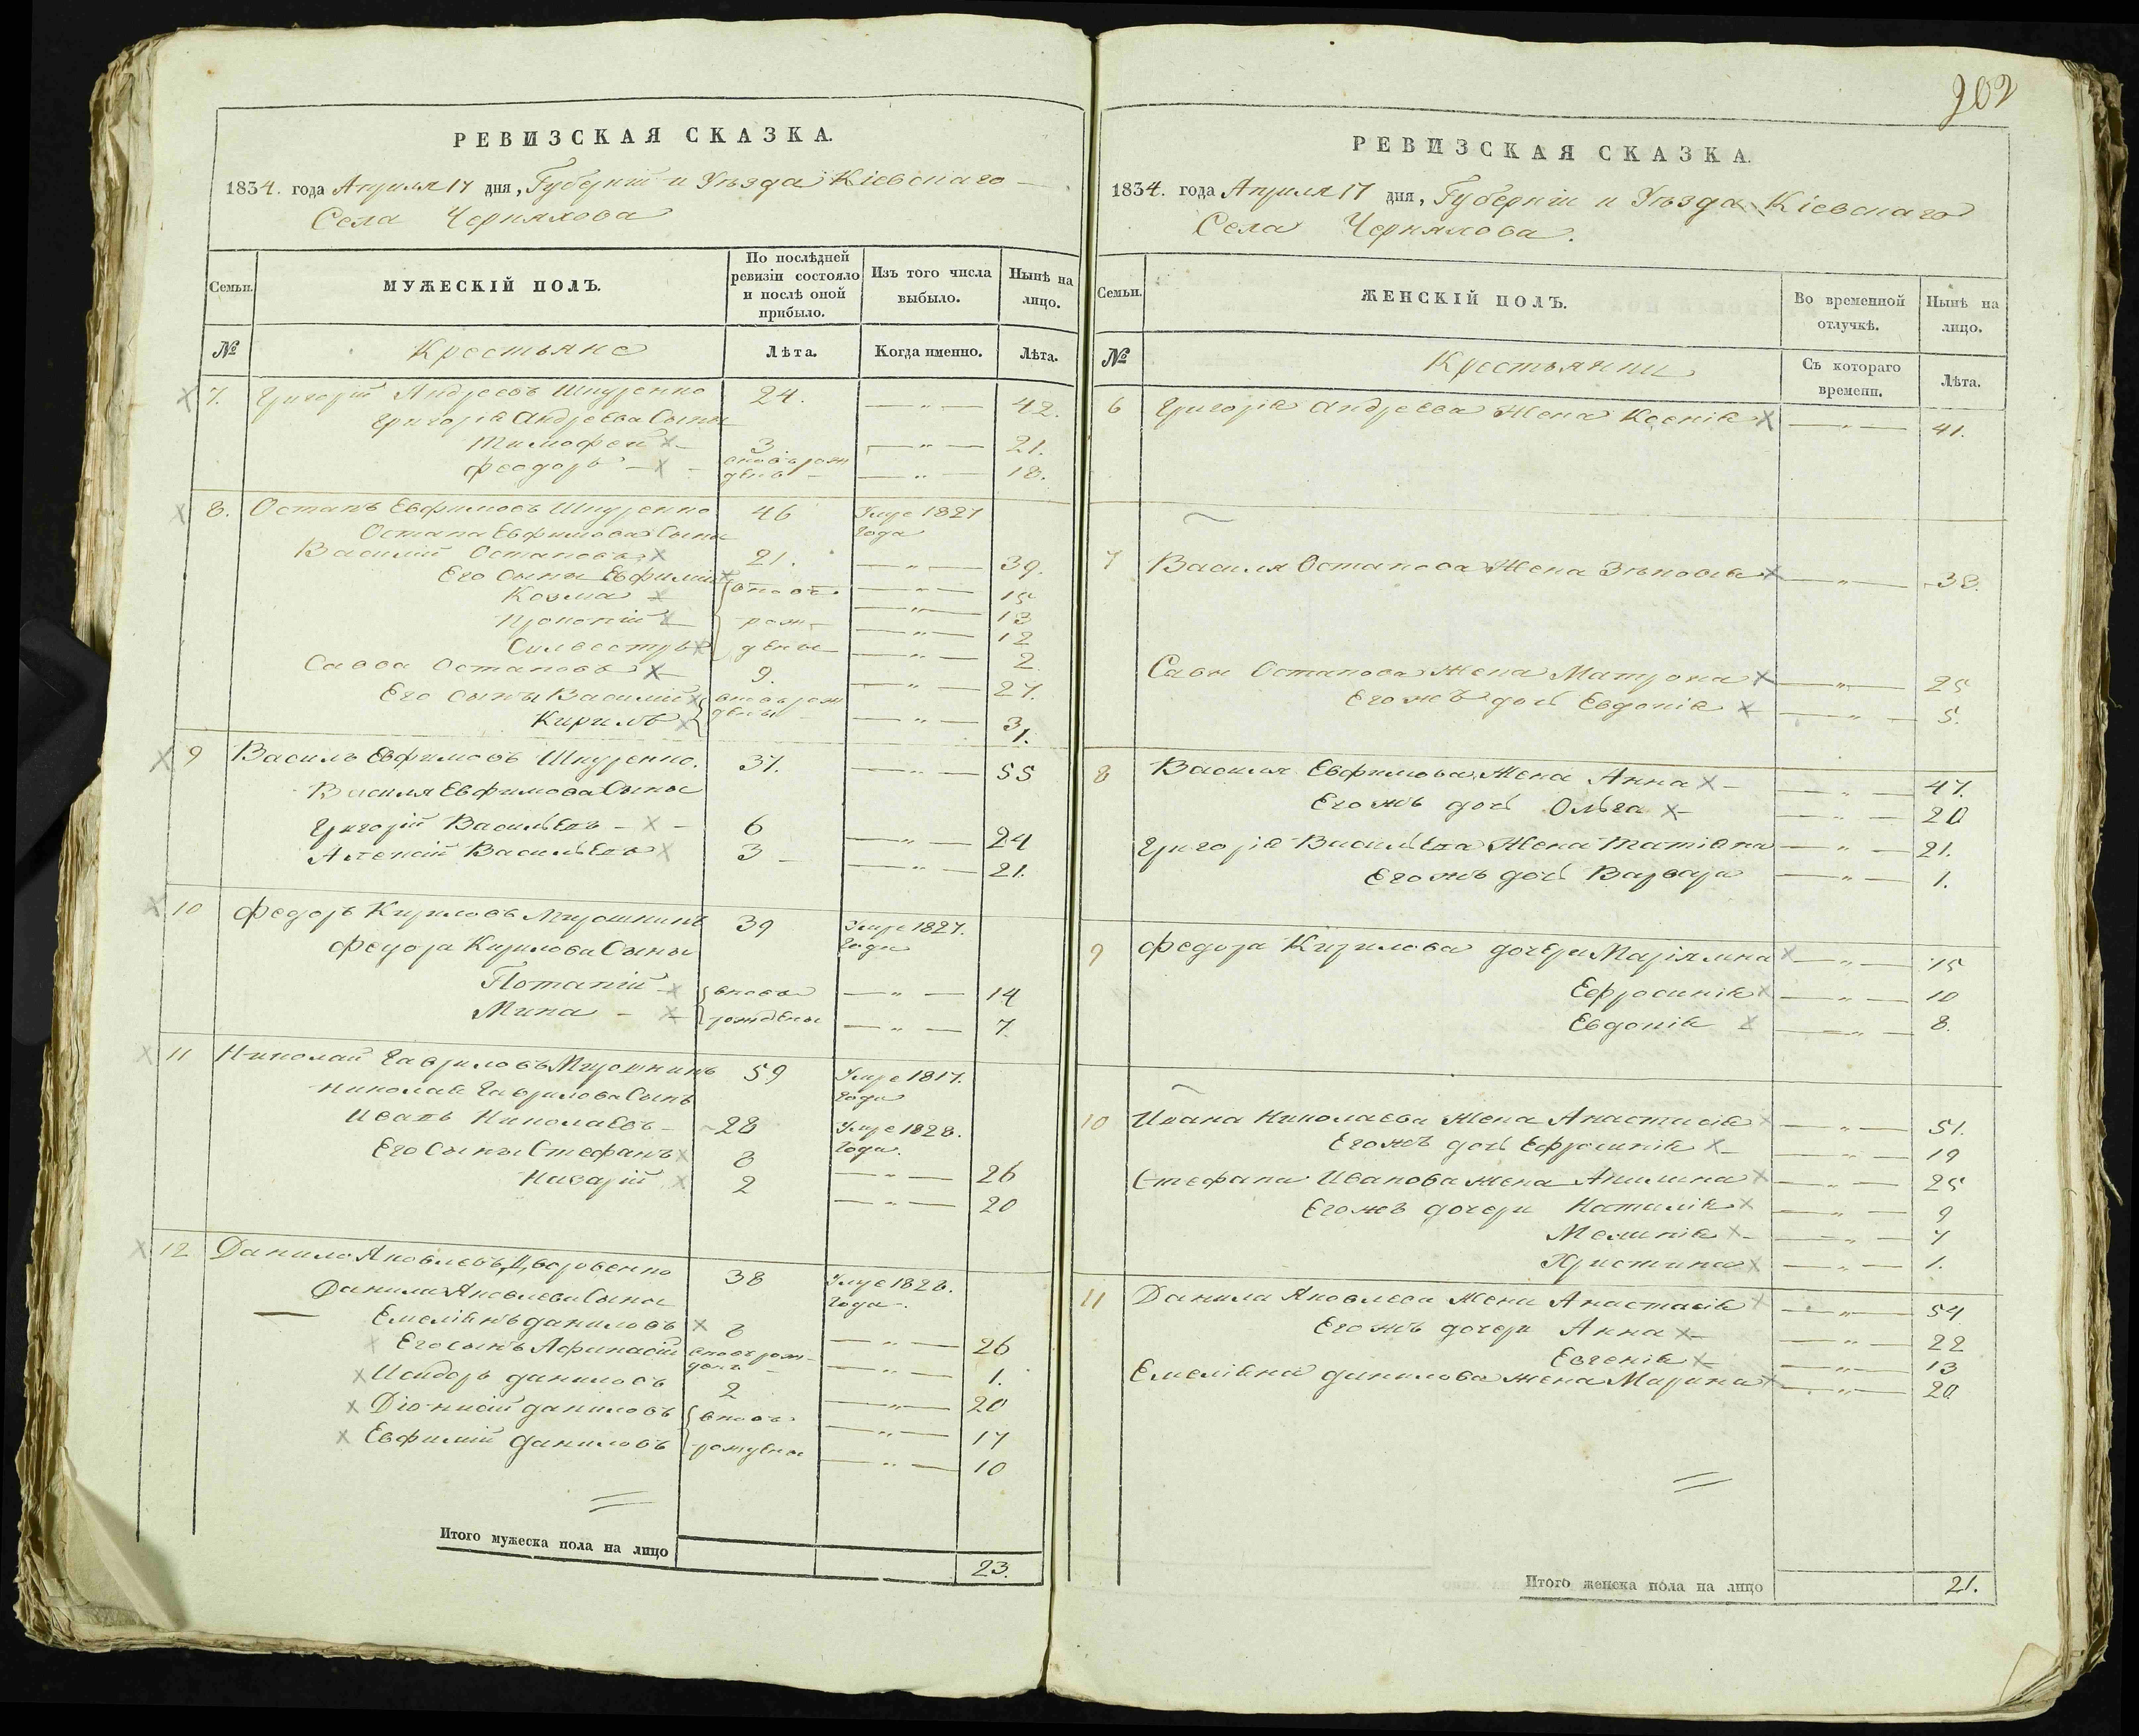 202
РЕВИЗСКАЯ СКАЗКА.
1834. года Апреля 17 дня, Губерніи и Уѣзда Кіевскаго
Села Черняхова
Семьи.
МУЖЕСКІЙ ПОЛЪ.
По послѣдней ревизіи состояло и послѣ оной прибыло.
Изъ того числа выбыло.
Нынѣ на лицо.
№
Крестьяне
Лѣта.
Когда именно.
Лѣта.
7. Григорій Андреевъ Шпуренко 24. — " — 42.
Григорія Андреева Сыны
Тимофей 3. — " — 21.
Феодоръ вновь рож денъ — " — 18.
8. Остапъ Евфимовъ Шпуренко 46 Умре 1821 года
Остапа Евфимова Сыны
Василій Остаповъ 21. — " — 39.
Его сыны Евфимій вновь — " — 15
Козма — " — 13
Прокопій рож — " — 12
Силвестръ дены — " — 2
Савва Остаповъ 9. — " — 27.
Его сыны Василій вновь рож дены — " — 3
Кирилъ 1.
9 Василь Евфимовъ Шпуренко. 37. — " — 55
Василя Евфимова Сыны
Григорій Васильевъ 6 — " — 24
Алексій Васильевъ 3 — " — 21.
10 Федоръ Кириловъ Мирошникъ 39 Умре 1827. года
Федора Кирилова Сыны
Потапій вновь — " — 14
Мина рождены — " — 7.
11 Николай Гавриловъ Мирошникъ 59 Умре 1817. года
Николая Гаврилова Сынъ
Иванъ Николаевъ 28 Умре 1828. года.
Его Сыны Стефанъ 8 — " — 26
Назарій 2 — " — 20
12 Данило Яковлевъ 38 Умре 1828. года.
Данила Яковлева Сыны
Емеліянъ даниловъ 8 — " — 26
Его сынъ Афанасій вновь рож денъ — " — 1.
Исидоръ даниловъ 2 — " — 20
Діонисій даниловъ вновь — " — 17
Евфимій даниловъ рождены — " — 10
Итого мужеска пола на лицо 23.
РЕВИЗСКАЯ СКАЗКА.
1834. года Апреля 17 дня, Губерніи и Уѣзда Кіевскаго
Села Черняхова.
Семьи.
ЖЕНСКІЙ ПОЛЪ.
Во временной отлучкѣ.
Нынѣ на лицо.
№
Крестьянки
Съ котораго времени.
Лѣта.
6 Григорія Андреева Жена Ксенія — " — 41.
7 Василя Остапова Жена Зѣновія — " — 38.
Савы Остапова Жена Матрона — " — 25
Егожъ дочь Евдокія — " — 5.
8 Василя Евфимова Жена Анна — " — 47.
Егожъ дочь Ольга — " — 20
Григорія Васильева Жена Татіяна — " — 21.
Егожъ дочь Варвара — " — 1.
9 Федора Кирилова дочери Маріямна — " — 15
Ефросинія — " — 10
Евдокія — " — 8.
10 Ивана Николаева Жена Анастасія — " — 51.
Егожъ дочь Ефросинія — " — 19
Стефана Иванова жена Акилина — " — 25
Егожъ дочери Наталія — " — 9
Меланія — " — 7
Христина — " — 1.
11 Данила Яковлева Жена Анастасія — " — 54
Егожъ дочери Анна — " — 22
Евгенія — " — 13
Емеліяна данилова жена Марина — " — 20
Итого женска пола на лицо 21.